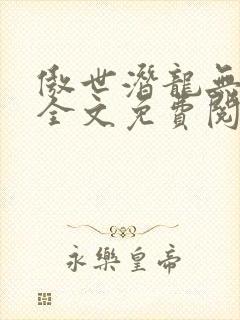 傲世潛龍無
全文免費閱
永樂皇帝